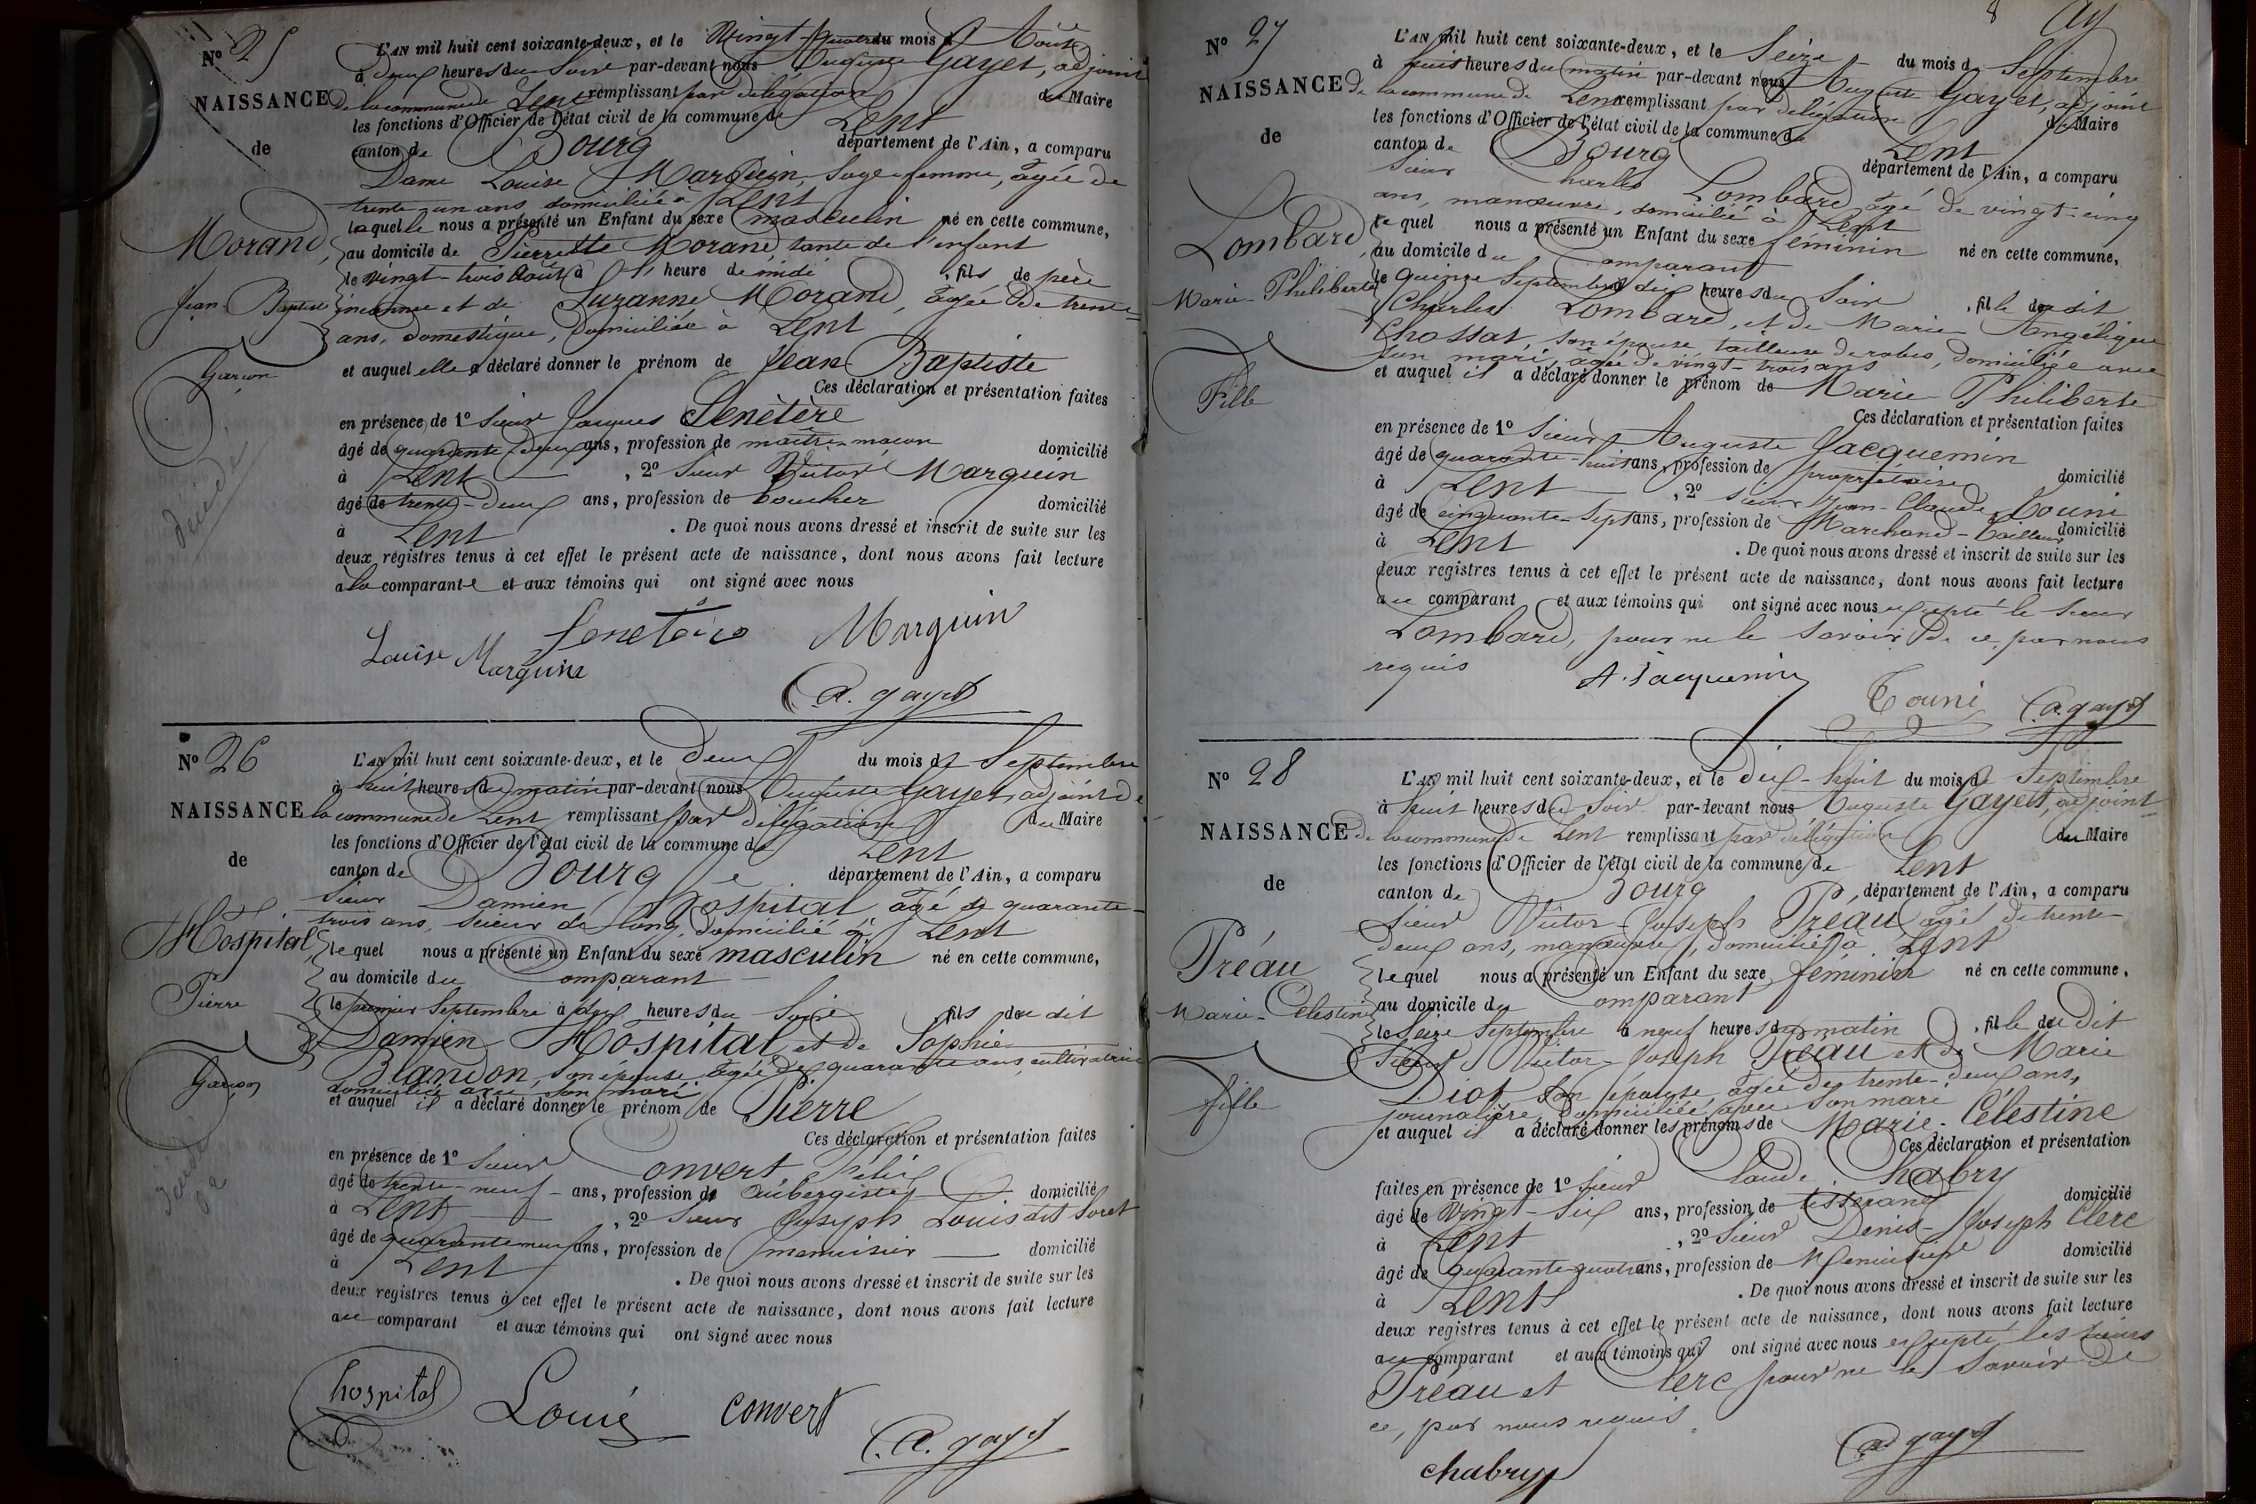 Nº 25
L'AN mil huit cent soixante-deux, et le Vingt-quatre du mois d'Août
à deux heures du Soir par-devant nous Auguste Gayet, adjoint
NAISSANCE de la commune de Lent remplissant par délégation du Maire
les fonctions d'Officier de l'état civil de la commune de Lent
de
canton de Bourg département de l'Ain, a comparu
Dame Louise Marguin, Sage-femme, âgée de
trente-un ans domiciliée à Lent
laquelle nous a présenté un Enfant du sexe masculin né en cette commune,
Morand,
au domicile de Pierrette Morand, tante de l'enfant
le Vingt-trois Août à l' heure de midi , fils de père
Jean-Baptiste
inconnu et de Suzanne Morand, âgée de trente-
ans, domestique, domiciliée à Lent
Garçon
et auquel elle a déclaré donner le prénom de Jean Baptiste
Ces déclaration et présentation faites
en présence de 1º Sieur Jacques Senétère
âgé de quarante deux ans, profession de maître-maçon domicilié
à Lent , 2º Sieur Victor Marguin
âgé de trente-deux ans, profession de boucher domicilié
à Lent . De quoi nous avons dressé et inscrit de suite sur les
deux registres tenus à cet effet le présent acte de naissance, dont nous avons fait lecture
à la comparante et aux témoins qui ont signé avec nous
décédé
Louise Marguin Senetère Marguin
A. gayet
Nº 26
L'AN mil huit cent soixante-deux, et le deux du mois de Septembre
à huit heures du matin par-devant nous Auguste Gayet, adjoint de
NAISSANCE la commune de Lent remplissant par délégation du Maire
les fonctions d'Officier de l'état civil de la commune de Lent
de
canton de Bourg département de l'Ain, a comparu
Sieur Damien Hospital âgé de quarante-
trois ans, scieur de long, domicilié à Lent
Hospital
lequel nous a présenté un Enfant du sexe masculin né en cette commune,
au domicile du Comparant
Pierre
le premier Septembre à dix heures du Soir , fils du dit
Damien Hospital et de Sophie
Blandon, son épouse âgée de quarante ans, cultivatrice
Garçon
domiciliée avec son mari
et auquel il a déclaré donner le prénom de Pierre
Ces déclaration et présentation faites
en présence de 1º Sieur Convert Félix
âgé de trente-neuf ans, profession de aubergiste domicilié
à Lent , 2º Sieur Joseph Louis dit Loret
âgé de quarante neuf ans, profession de menuisier domicilié
à Lent . De quoi nous avons dressé et inscrit de suite sur les
deux registres tenus à cet effet le présent acte de naissance, dont nous avons fait lecture
au comparant et aux témoins qui ont signé avec nous
hospital Louis convert
A. gayet
8
Nº 27
L'AN mil huit cent soixante-deux, et le Seize du mois de Septembre
à huit heures du matin par-devant nous Auguste Gayet, adjoint
NAISSANCE de la commune de Lent remplissant par délégation du Maire
les fonctions d'Officier de l'état civil de la commune de Lent
de
canton de Bourg département de l'Ain, a comparu
Sieur Charles Lombard âgé de vingt-cinq
ans, manœuvre, domicilié à Lent
Lombard,
lequel nous a présenté un Enfant du sexe féminin né en cette commune,
au domicile du Comparant
Marie-Philiberte
le quinze Septembre à dix heures du Soir , fille du dit
Charles Lombard, et de Marie Angélique
Chossat, son épouse, tailleuse de robes, domiciliée avec
son mari, âgée de vingt-trois ans
Fille
et auquel il a déclaré donner le prénom de Marie Philiberte
Ces déclaration et présentation faites
en présence de 1º Sieur Auguste Jacquemin
âgé de quarante-huit ans, profession de propriétaire domicilié
à Lent , 2º Sieur Jean-Claude Touni
âgé de cinquante-sept ans, profession de Marchand-Tailleur domicilié
à Lent . De quoi nous avons dressé et inscrit de suite sur les
deux registres tenus à cet effet le présent acte de naissance, dont nous avons fait lecture
au comparant et aux témoins qui ont signé avec nous excepté le Sieur
Lombard, pour ne le savoir de ce par nous
requis
A. Jacquemin Touni A. gayet
Nº 28
L'AN mil huit cent soixante-deux, et le dix-huit du mois de Septembre
à huit heures du Soir par-devant nous Auguste Gayet, adjoint
NAISSANCE de la commune de Lent remplissant par délégation du Maire
les fonctions d'Officier de l'état civil de la commune de Lent
de
canton de Bourg département de l'Ain, a comparu
Sieur Victor-Joseph Préau âgé de trente-
deux ans, manœuvre, domicilié à Lent
Préau
lequel nous a présenté un Enfant du sexe féminin né en cette commune,
Marie-Célestine
au domicile du Comparant
le Seize Septembre à neuf heures du matin , fille du dit
Sieur Victor-Joseph Préau et de Marie
Diot son épouse âgée de trente-deux ans,
fille
journalière domiciliée avec son mari
et auquel il a déclaré donner les prénoms de Marie-Célestine
Ces déclaration et présentation
faites en présence de 1º Sieur Claude Chabry
âgé de Vingt-Six ans, profession de tisserand domicilié
à Lent , 2º Sieur Denis-Joseph Clerc
âgé de quarante quatre ans, profession de Menuisier domicilié
à Lent . De quoi nous avons dressé et inscrit de suite sur les
deux registres tenus à cet effet le présent acte de naissance, dont nous avons fait lecture
au comparant et aux témoins qui ont signé avec nous excepté les Sieurs
Préau et Clerc pour ne le savoir de
ce, par nous requis.
A. gayet
chabry